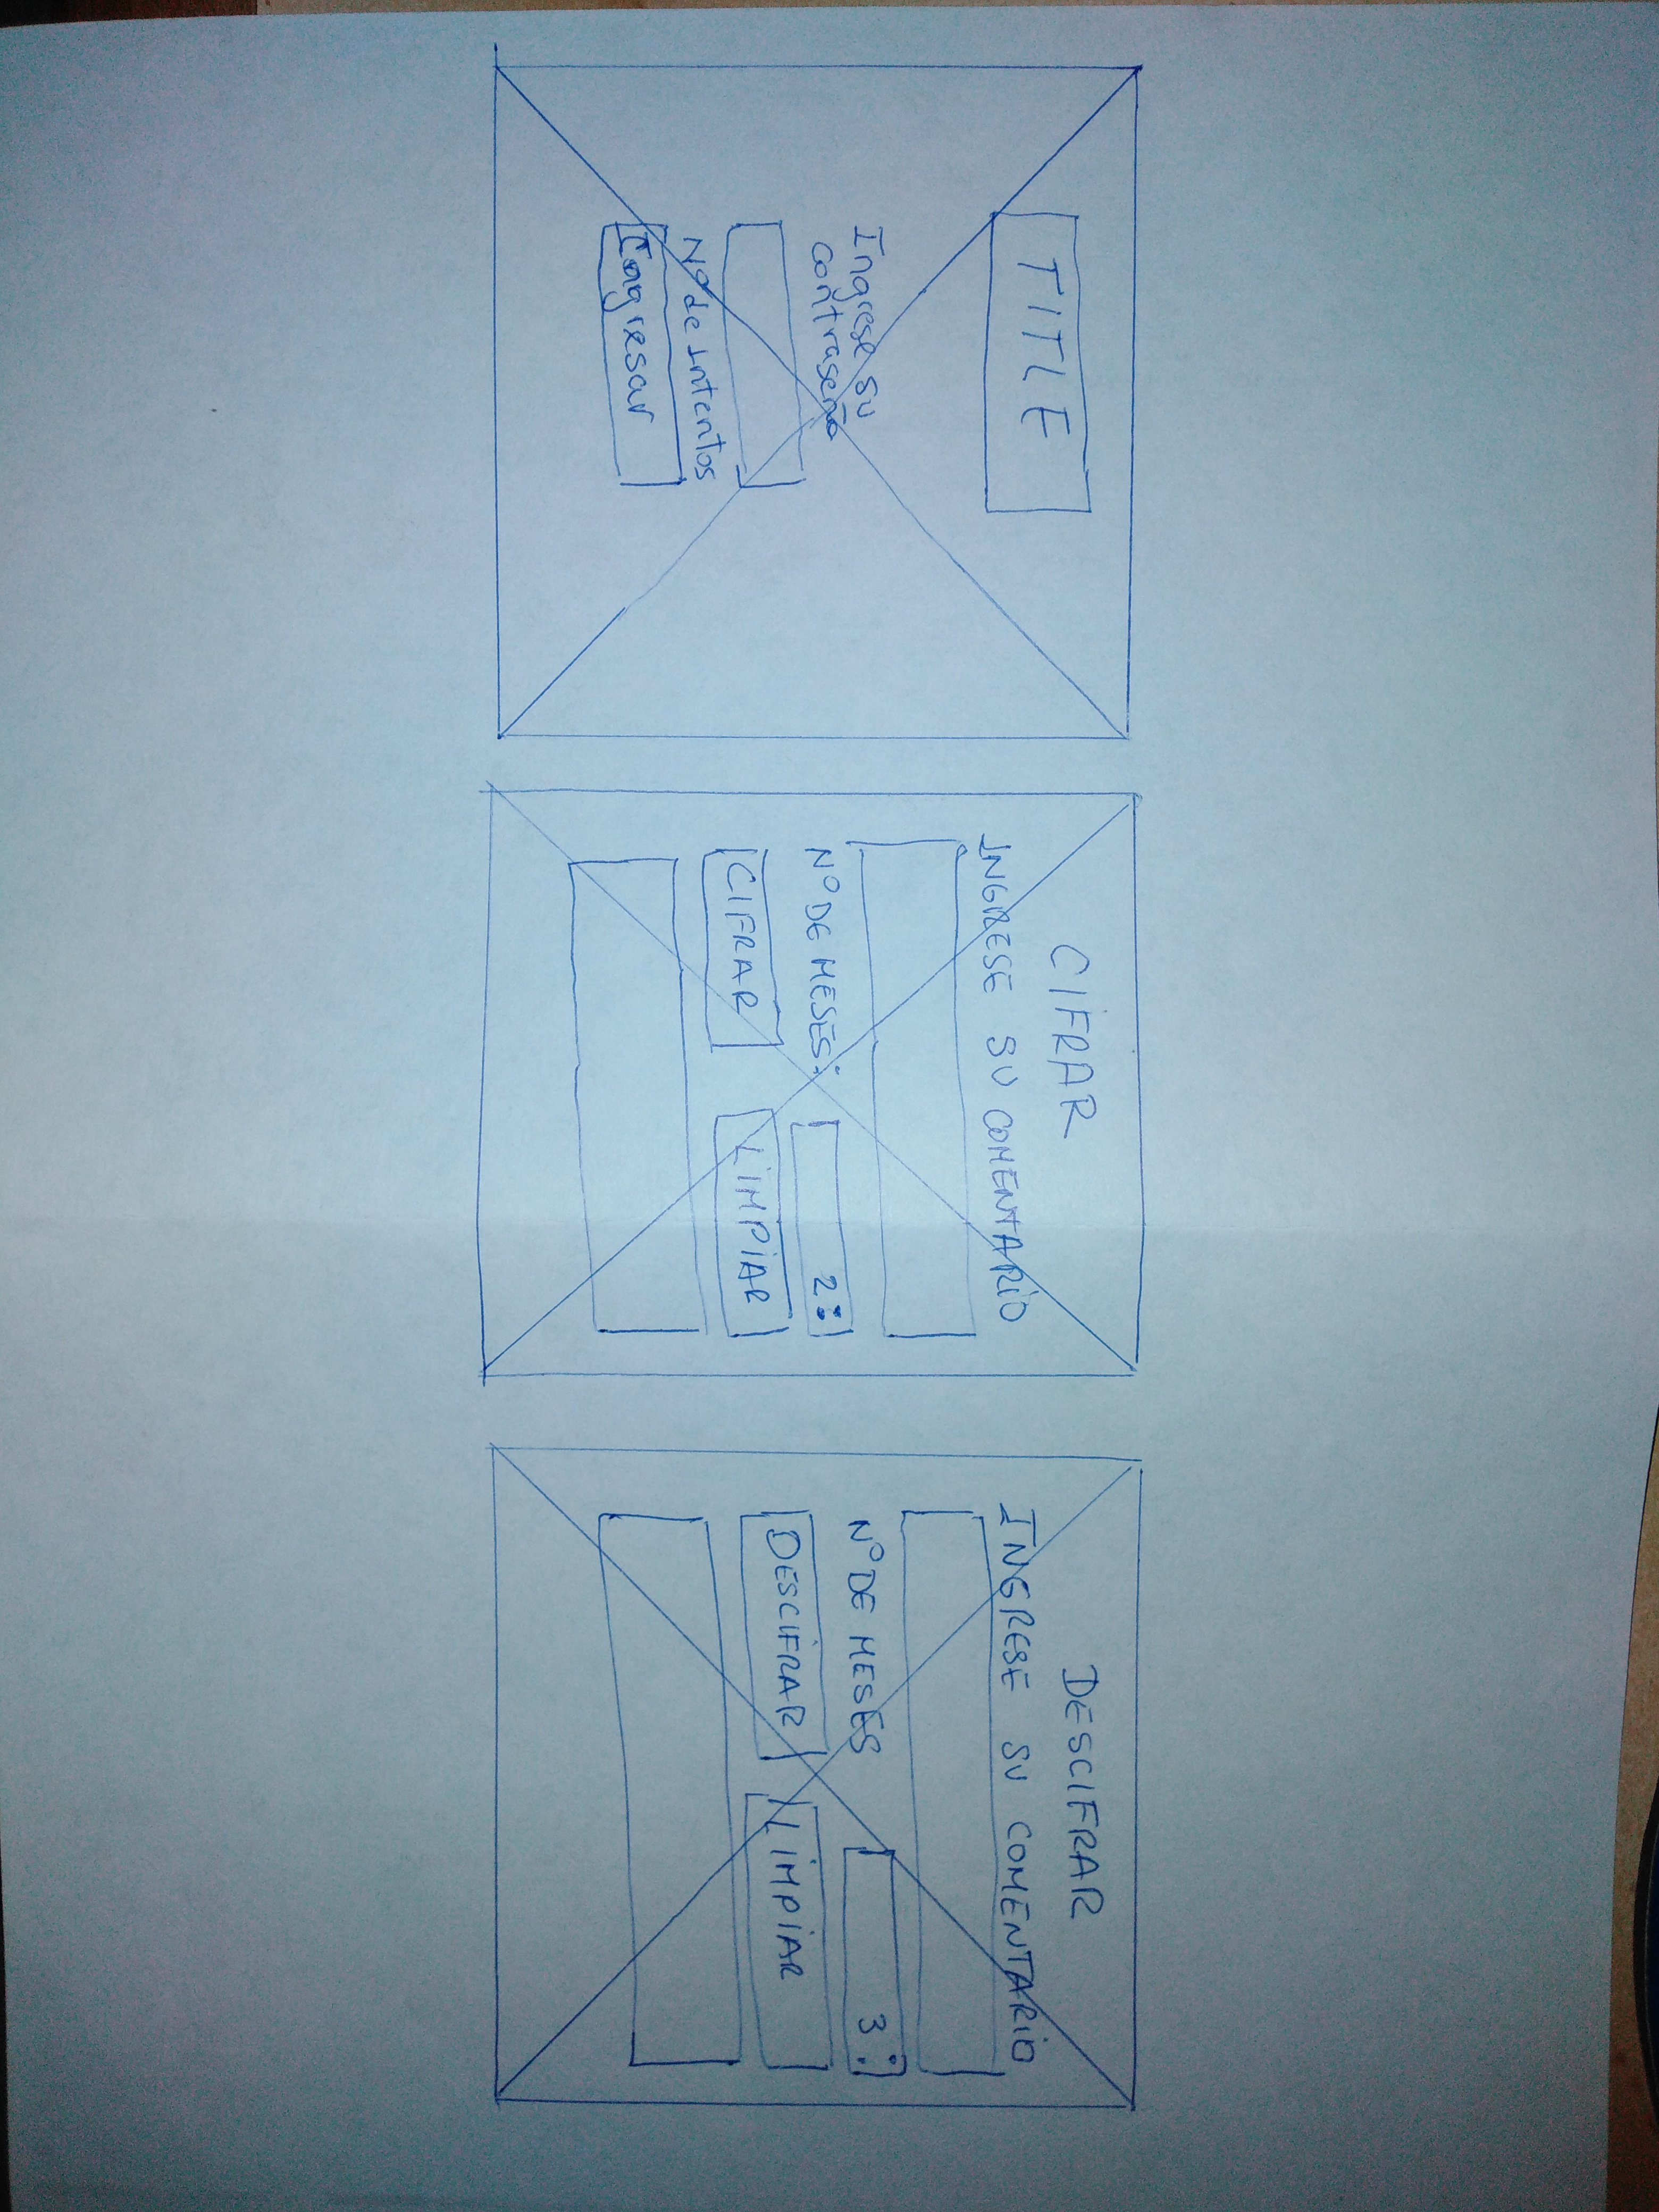 TITLE
Ingrese su
contraseña
Nº de intentos
Ingresar
CIFRAR
INGRESE SU COMENTARIO
Nº DE MESES: 2
CIFRAR LIMPIAR
DESCIFRAR
INGRESE SU COMENTARIO
Nº DE MESES 3
DESCIFRAR LIMPIAR